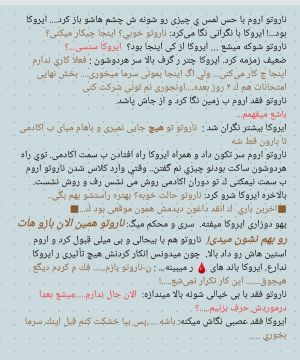 ناروتو اروم با حس لمس ی چیزی رو شونه ش چشم هاشو باز کرد.... ایروکا
بود...! ایروکا با نگرانی نگا می‌کرد: ناروتو خوبی؟ اینجا چیکار میکنی؟
ناروتو شوکه میشع ... ایروکا از کی اینجا بود؟ ایروکا سنسی...؟
ضعیف زمزمه کرد. ایروکا چتر رگرف بالا سر هردوشون : فعلا کاری ندارم
اینجا چ کار می‌کنی... ولی اگ اینجا بمونی سرما میخوری.... بخش نهایی
امتحانات هم ک ۲ روز بعده....اونجوری نم تونی شرکت کنی
ناروتو فقد اروم ب زمین نگا کرد و از جاش پاشد.
باشع میفهمم...
ایروکا بیشتر نگران شد : ناروتو تو هیچ جایی نمیری و باهام میای ب اکادمی
تا بارون قط شه
ناروتو اروم سر تکون داد و همراه ایروکا راه افتادن ب سمت اکادمی. توی راه
هردوشون ساکت بودنو چیزی نم گفتن.. وقتی وارد کلاس شدن ناروتو اروم
ب سمت نیمکتی ک تو دوران اکادمی روش می نشس رف و روش نشست.
بالاخره ایروکا شرو کرد: ناروتو حالت خوبه؟ بهتره راستشو بهم بگی..
■اخرین باری ک انقد داغون دیدمش همون موقعی بود ک....■
یهو دوزاری ایروکا میفته. سری و محکم میگ: ناروتو همین الان بازو هات
رو بهم نشون میدی! ناروتو هم با بیحالی و بی میلی قبول کرد و اروم
استین هاش رو داد بالا. چون میدونس انکار کردنش هیچ تأثیری رو ایروکا
ندارع. ایروکا باند های 🩸 ر میبینه... : ن-ناروتو بازم..... فک م کردم دیگع
هیچوق...... این کار تکرار نمی‌شع....!
ناروتو فقد با بی خیالی شونه بالا میندازه: الان حال ندارم.....میشع بعدا
درموردش حرف بزنیم.....؟
ایروکا فقد عصبی نگاش میکنه: باشه.....پس بیا خشکت کنم قبل اینک سرما
بخوری ....